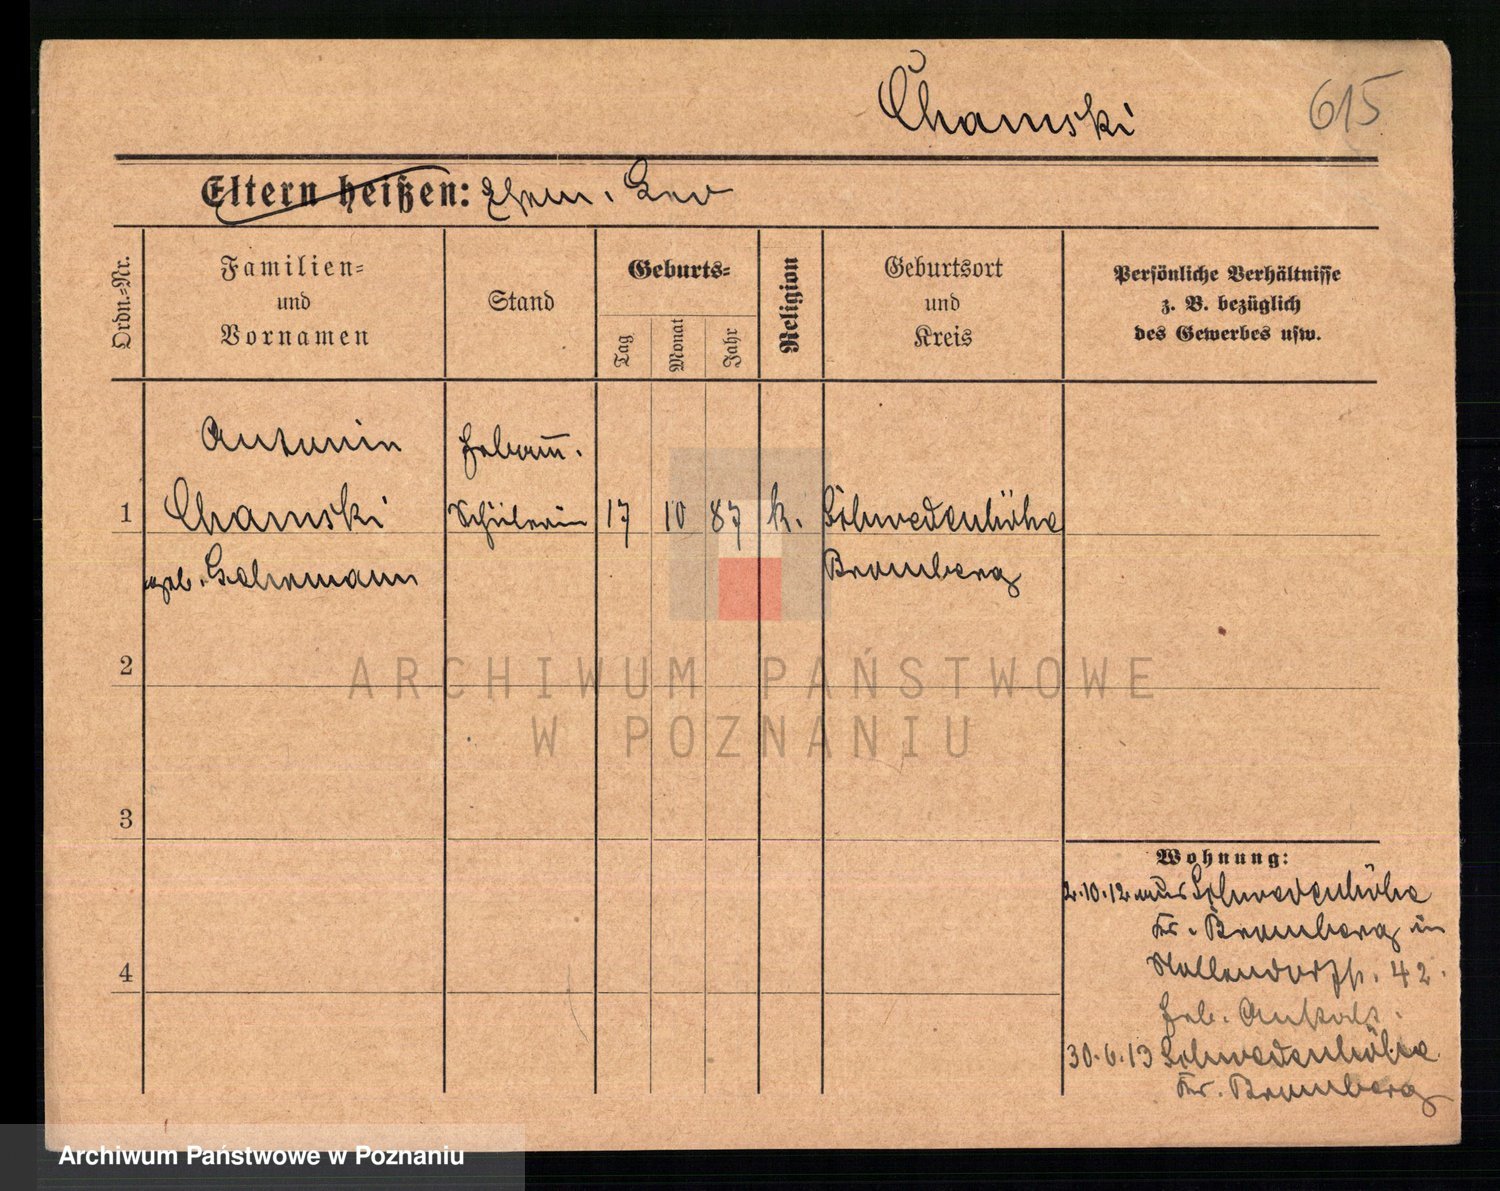 Chamski
615
Eltern heißen: Ehem. Leo
Ordn.-Nr.
Familien-
und
Vornamen
Stand
Geburts-
Tag
Monat
Jahr
Religion
Geburtsort
und
Kreis
Persönliche Verhältnisse
z. B. bezüglich
des Gewerbes usw.
Antonie
Hebam̅.
1
Chamski
Schülerin
17
10
87
k.
Schwedenhöhe
geb. Gehrmann
Bromberg
2
ARCHIWUM PAŃSTWOWE
W POZNANIU
3
Wohnung:
2.10.12 aus Schwedenhöhe
Kr. Bromberg in
42.
4
Heb. Anstalt.
30.6.13 Schwedenhöhe
Kr. Bromberg
Archiwum Państwowe w Poznaniu